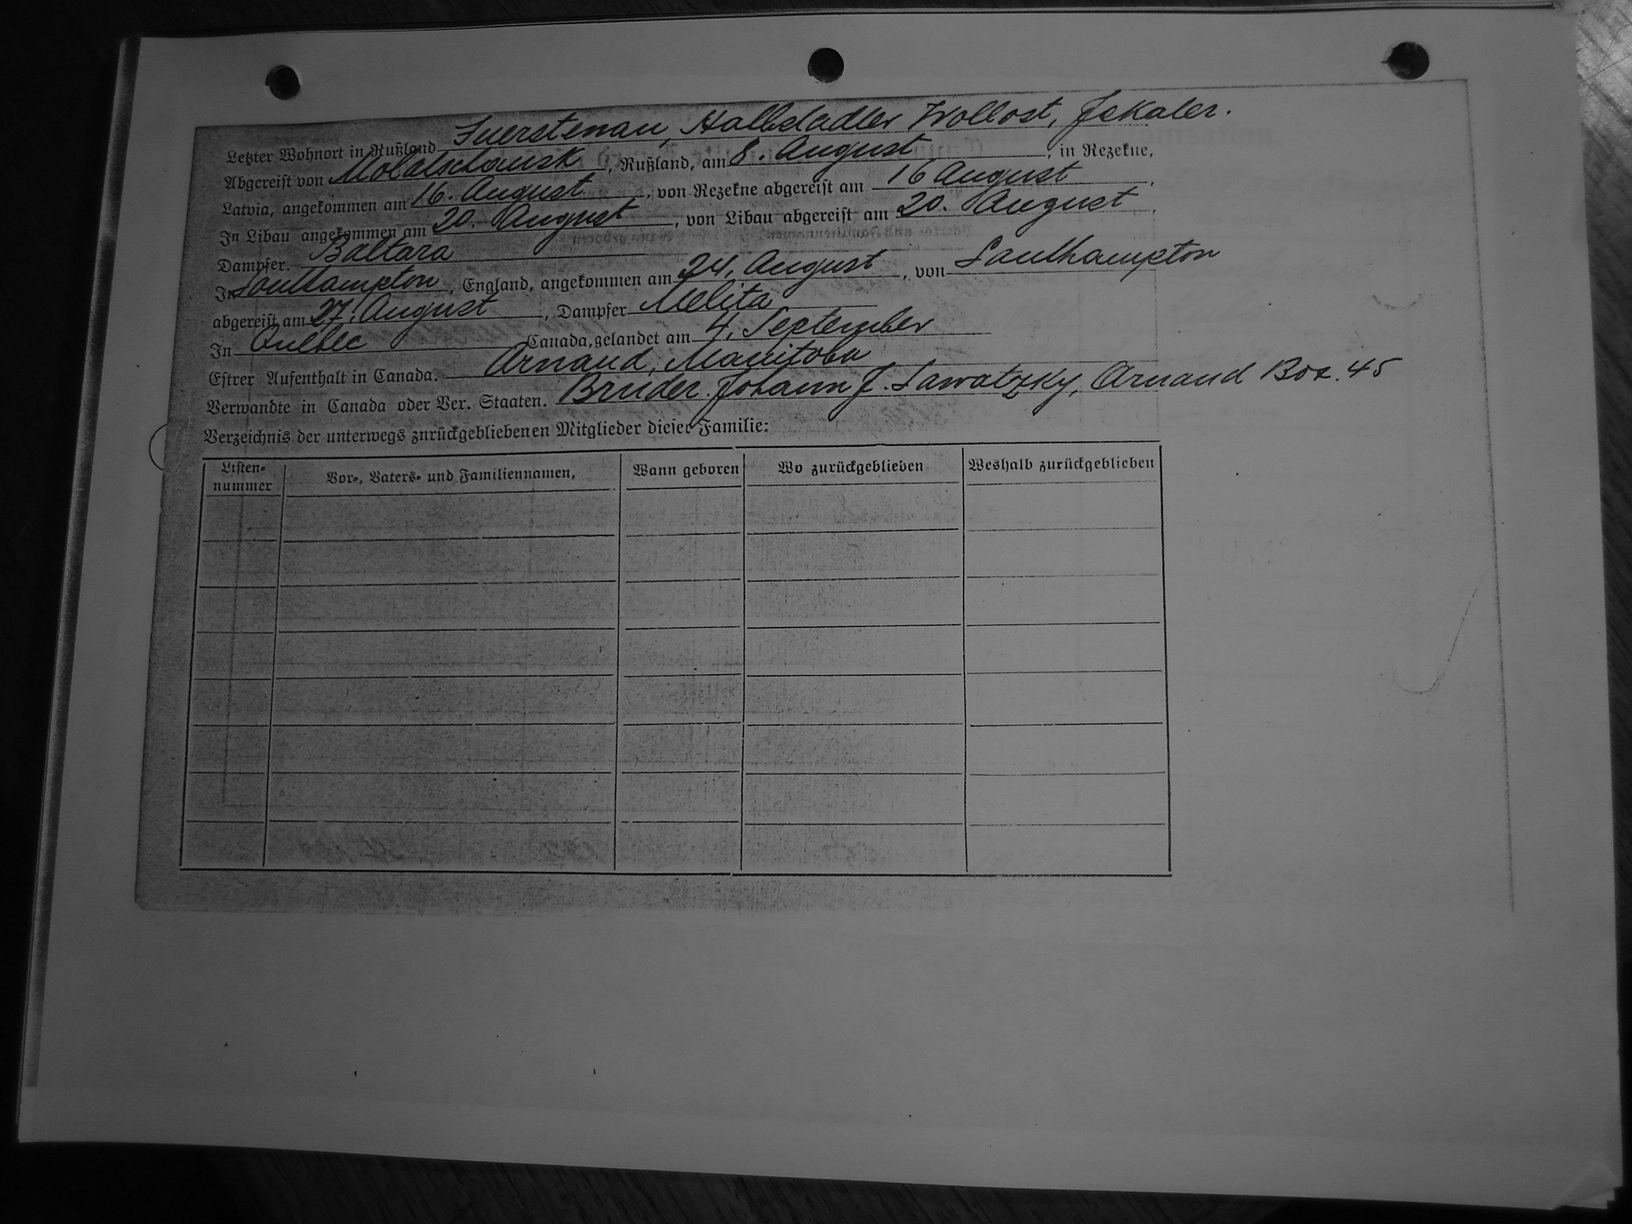 Letzter Wohnort in Rußland Fuerstenau, Halbstadler Wollost, Jekater.
Abgereist von Molotschansk, Rußland, am 8. August, in Rezekne,
Latvia, angekommen am 16. August, von Rezekne abgereist am 16 August.
In Libau angekommen am 20. August, von Libau abgereist am 20. August.
Dampfer. Baltara
In Southampton, England, angekommen am 24. August, von Southampton
abgereist am 27. August, Dampfer Melita
In Quebec Canada, gelandet am 4. September
Estrer Aufenthalt in Canada. Arnaud, Manitoba
Verwandte in Canada oder Ver. Staaten. Bruder. Johann J. Sawatzky, Arnaud Box. 45
Verzeichnis der unterwegs znrückgebliebenen Mitglieder dieser Familie:
Listen-nummer Vor-, Vaters- und Familiennamen, Wann geboren Wo zurückgeblieben Weshalb zurückgeblieben